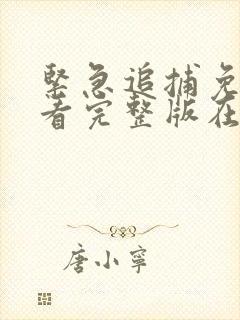 緊急追捕免
看完整版在
唐小寧